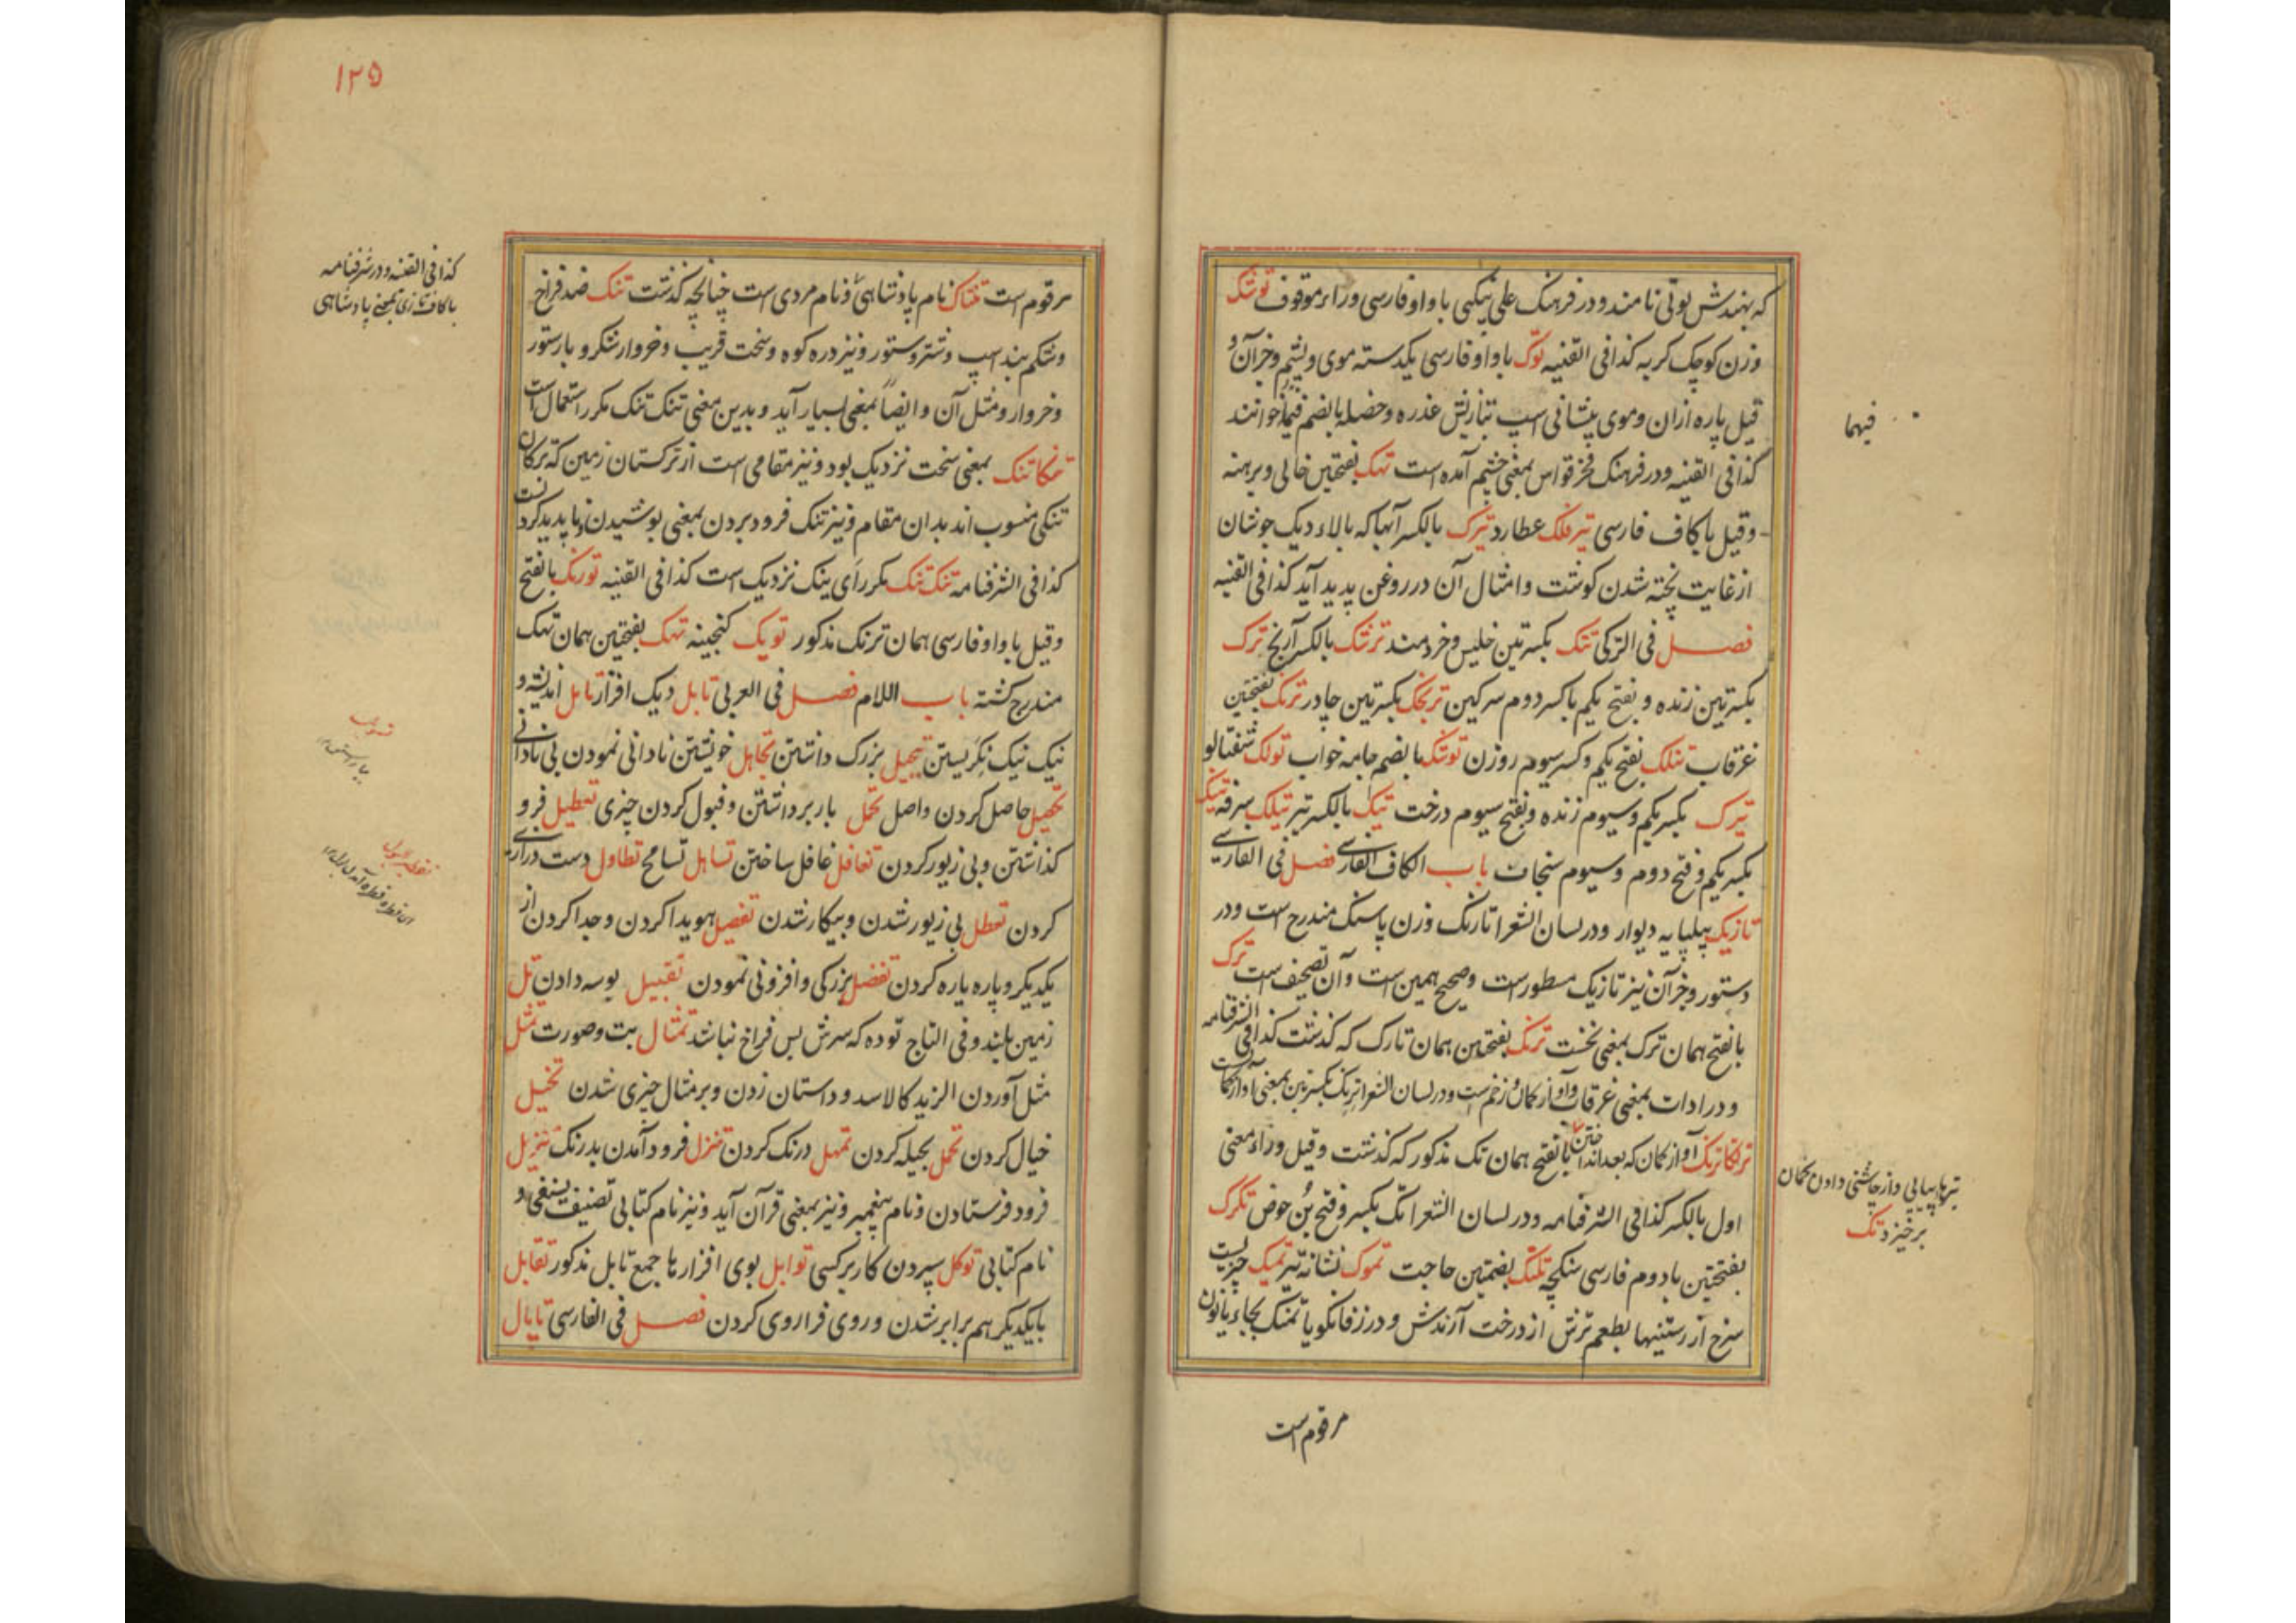 که بهندش بوتی نامند و در فرهنگ علی نیکپی با واو فارسی و راء موقوف توشک
وزن کوچک گربه کذا فی القنیه توک با واو فارسی یکدسته موی و پشم و جز آن و
قیل پاره ازان و موی پیشانی اسپ بتازیش عذره و خصله بالضم فیهما خوانند
فیهما
کذا فی القنیه و در فرهنگ فخر قواس بمعنی چشم آمده است تهک بفتحتین خالی و برهنه
وقیل با کاف فارسی تیر فلک عطارد تیرک بالکسر آنها که بالاء دیک جوشان
از غایت پخته شدن کوشت و امثال آن در روغن پدید آید کذا فی القنیه
فصل فی الترکی تنک بکسرتین خلیس و خردمند ترشک بالکسر آرنج ترک
بکسرتین زنده و بفتح یکم با کسر دوم سرکین تربجک بکسرتین چادر ترنک بفتحتین
غرقاب تنلک بفتح یکم و کسر سیوم روزن توشک بالضم جامه خواب تولک شفتالو
تیرک بکسر یکم و سیوم زنده و بفتح سیوم درخت تیک بالکسر تیر تیلک سرفه تینک
بکسر یکم و فتح دوم و سیوم سنجاب باب الکاف الفارسی فصل فی الفارسی
تازیک پیلپایه دیوار و در لسان الشعرا تارنک وزن پاسنک مندرج است و در
دستور و جز آن نیز تازیک مسطور است و صحیح همین است و آن تصحیف است ترک
بالفتح همان ترک بمعنی نخست ترنک بفتحتین همان تارک که کذشت کذا فی الشرفنامه
و در ادات بمعنی غرقاب و آواز کمان و زخم است و در لسان الشعرا ترنک بکسرتین بمعنی آواز کمانست
ترنکاترنک آواز کمان که بعد انداختن بالفتح همان تک مذکور که کذشت وقیل وراء معنی
تیرها پیاپی و از چاشنی دادن کمان
برخیزد تک
اول بالکسر کذا فی الشرفنامه و در لسان الشعرا تک بکسر و فتح بُن حوض تکرک
بفتحتین با دوم فارسی سنکچه تلنک بضمتین حاجت تموک نشانه تیر تمیک چیزیست
سرخ از رستنیها بطعم ترش از درخت آرندش و در زفانکویا تمنک بجاء یا نون
مرقوم است
۱۲۵
مرقوم است تنتاک نام پادشاهی و نام مردی است چنانچه کذشت تنک ضد فراخ
کذا فی القنیه و در شرفنامه
با کاف تازی بمعنی پادشاهی
و شکم بند اسپ و شتر و ستور و نیز دره کوه و سخت قریب و خروار شکر و بار ستور
و خروار و مثل آن و ایضاً بمعنی بسیار آید و بدین معنی تنک تنک مکرر استعمال است
تنکاتنک بمعنی سخت نزدیک بود و نیز مقامی است از ترکستان زمین که ترکان
تنکی منسوب اند بدان مقام و نیز تنک فرو بردن بمعنی پوشیدن و ناپدید کردنست
کذا فی الشرفنامه تنک تنک مکرر ای ینک نزدیک است کذا فی القنیه تورنک بالفتح
وقیل با واو فارسی همان ترنک مذکور تویک کنجینه تهک بفتحتین همان تهک
مندرج کشته باب اللام فصل فی العربی تابل دیک افزار تامل اندیشه و
نیک نیک نکریستن تبجیل بزرک داشتن تجاهل خویشتن نادانی نمودن بی نادانی
تحصیل حاصل کردن و اصل تحمل بار برداشتن و قبول کردن چیزی تعطیل فرو
کذاشتن و بی زیور کردن تغافل غافل ساختن تساهل تسامح تطاول دست درازی
کردن تعطل بی زیور شدن و بیکار شدن تفصیل هویدا کردن و جدا کردن از
یکدیکر و پاره پاره کردن تفضل بزرکی و افزونی نمودن تقبیل بوسه دادن تل
زمین بلند و فی التاج توده که سرش بس فراخ نباشد تمثال بت و صورت تمثل
مثل آوردن الزید کالاسد و داستان زدن و بر مثال چیزی شدن تخییل
خیال کردن تمحل بحیله کردن تمهل درنک کردن تنزل فرود آمدن بدرنک تنزیل
فرود فرستادن و نام پیغمبر و نیز بمعنی قرآن آید و نیز نام کتابی تصنیف نسفی و
نام کتابی توکل سپردن کار بر کسی توابل بوی افزارها جمع تابل مذکور تقابل
بایکدیکر هم برابر شدن و روی فراروی کردن فصل فی الفارسی تابال